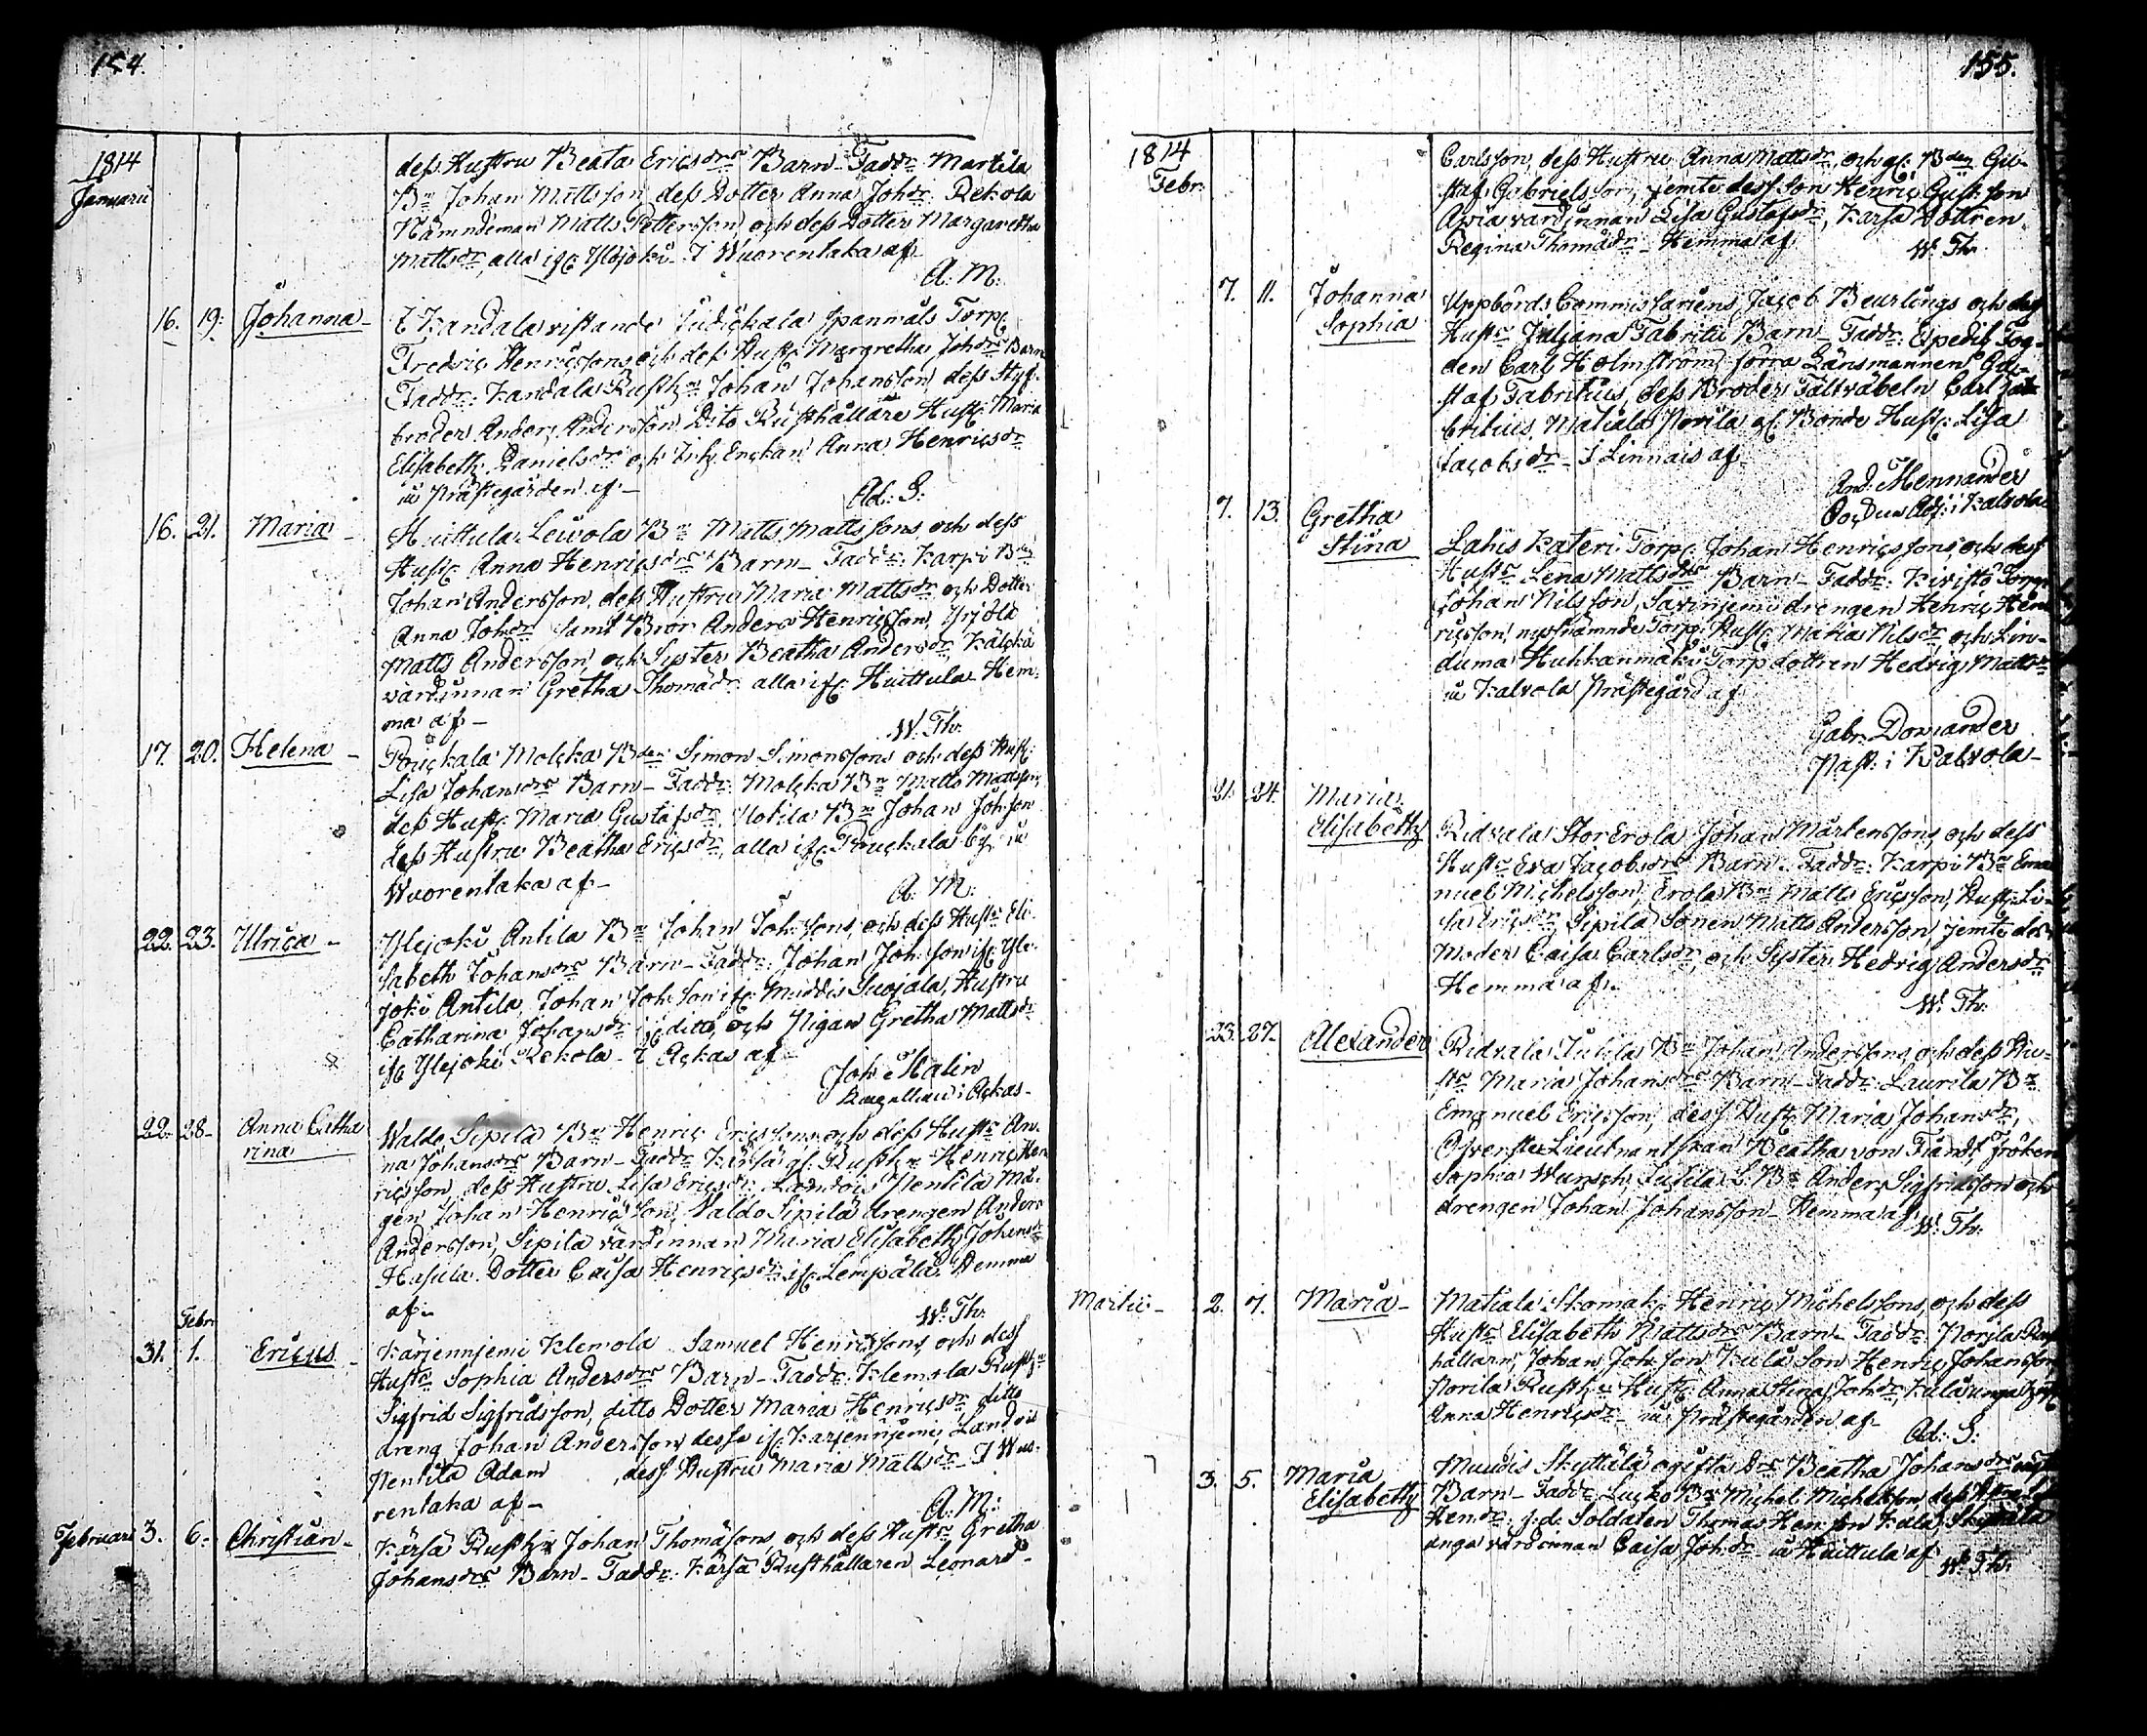 154.
1814
Januarii
dess Hustru Beata Ericsdrs Barn - Faddr. Martila
Bn Johan Mattsson, dess Dotter Anna Johdr. Rekola
Nämndeman Matts Pettersson och dess Dotter Margaretha
Mattsdr, alla ifr. Ylejoki. I Wuorentaka af
A: M:
16. 19. Johanna - i Kandala vistande Spanmåls Torp.
Fredric Henricssons och dess Hust. Margretha Johdrs Barn
Faddr. Kandala Rusth:n Johan Johansson, dess
broder Anders Andersson Dito Rusthållare Hust. Maria
Elisabeth Danielsdr och Enkan Anna Henricsdr
i Prästegården af -
Ad: S:
16. 21. Maria - Huittula Lewola Bn Matts Matts sons och dess
Hust. Anna Henricsdrs Barn - Faddr. Karpi Bn
Johan Andersson, dess Hustru Maria Mattsdr och Dotter
Anna Johsdr samt Bror Anders Henricsson, Yrjölä
Matts Andersson och Syster Beatha Andersdr, Kälckä
värdinnan Gretha Thomädr. alla ifr. Huittula - Hem-
ma af -
W. Th.
17. 20. Helena - Rouckala Molcka Bden Simon Simonssons och dess Hust.
Lisa Johansdrs Barn - Faddr. Molcka Bn Matts Mattsson,
dess Hust. Maria Gustafsdr. Notila Bn Johan Joh: son
dess Hustru Beatha Ericsdr, alla ifr. Rouckala by, i
Wuorentaka af -
A: M:
22. 23. Ulrica - Ylejoki Antila Bn Johan Joh: sons, och dess Hustr Eli-
sabeth Johansdrs Barn - Faddr. Johan Joh: son ifr. Yle-
joki Antila, Johan Joh: son ifr. Muddis Suojala, Hustru
Catharina Johansdr ifr ditto och Pigan Gretha Mattsdr
ifr Ylejoki Rekola - i Ackas af -
Joh: Malin
i Ackas -
22. 28. Anna Catha
rina
Waldo Sipilä Bn Henric Ericssons och dess Hustr An-
na Johansdrs Barn - Faddr. Kärsä gl. Rusth:n Henric Hen
ricsson, dess Hustru Lisa Ericsdr. Pentila Må-
gen Johan Henric son, Waldo Sipilä drengen Anders
Andersson, Sipilä värdinnan Maria Elisabeth Johansdr
Hasula Dotter Caisa Henricsdr ifr. Lempälä. Hemma
af -
W. Th.
Febr.
31. 1. Ericus - Kärjenniemi Klemola Samuel Henricssons, och dess
Hustr Sophia Andersdrs Barn - Faddr. Klemola Rusth:n
Sigfrid Sigfridsson, ditto Dotter Maria Henricsdr ditto
dreng Johan Andersson desse ifr. Karjenniemi,
Pentilä Adam , dess Hustru Maria Mattsdr - I Wuo-
rentaka af -
A: M:
Februari 3. 6. Christian - Kärsä Rusth:n Johan Thomäsons och dess Hustr Gretha
Johansdrs Barn - Faddr. Kärsä Rusthållaren Leonard
155.
1814
Febr:
Carlsson, dess Hustru Anna Mattsdr, och gl: Bden Gu-
staf Gabrielsson, jemte dess Son Henric Gust: son
värdinnan Lisa Gustafsdr, Kärsä Dottren
Regina Thomädr - Hemma af
W. Th.
7. 11. Johanna
Sophia
Uppbörds Commissariens Jacob Beurlings och dess
Hustr Juliana Fabritii Barn - Faddr: Fog-
den Carl Holmström, förra Länsmannen Gu-
staf Fabritius, dess Broder Fältväbeln Carl Fa
britius, Matiala Norila gl. Bonde Hust. Lisa
Jacobsdr - I Linnais af
And: Mennander
Adj: i Kalvola
7. 13. Gretha
Stina
Lahis Kateri Torp. Johan Henricssons och dess
Hustr Lena Mattsdrs Barn - Faddr. Kivistö Torp.
Johan Nilsson, drengen Henric Hen
ricsson, nysnämnde Torp: Hust. Maria Nilsdr, och Lin-
duma Huhkanmäki Torp dottren Hedvig Mattsdr
i Kalvola Prästegård af
Gabr. Domander
Past: i Kalvola -
21. 24. Maria
Elisabeth
Ridvala Stor Erola Johan Mårtenssons, och dess
Hustr Eva Jacobsdrs Barn. Faddr: Karpi Bn Ema
nuel Michelsson, Erola Bn Matts Ericsson, Hust. Li-
sa Ericsdr, Sipilä Sonen Matts Andersson, jemte dess
Moder Caisa Carlsdr, och Syster Hedvig Andersdr
Hemma af -
W. Th.
23. 27. Alexander Ridvala Bn Johan Anderssons, och dess Hu-
str Maria Johansdrs Barn - Faddr. Laurila Bn
Emanuel Ericsson, dess Hust. Maria Johansdr,
Öfverste Lieutnantskan Beatha von Fiandt, Fröken
Sophia Wunsch, Bn Anders Sigfridsson och
drengen Johan Johansson - Hemma af
W. Th.
Martii - 2. 7. Maria - Matiala Skomak. Henric Michelssons, och dess
Hustr Elisabeth Mattsdrs Barn - Faddr. Norila Rust
hållarn, Johan Joh: son Kulä Son Henric Johansson
Norila Rusth:n Hust. Anna Stina Johdr, Kulä unga
Anna Henricsdr - i Prästegården af -
Ad: S:
3. 5. Maria
Elisabeth
Muudis Skyttälä ogifta Drs Beatha Johansdrs
Barn - Faddr. Bn Michel Michelsson, dess
Hendr. Soldaten Thomas Hen: son
unga värdinnan Caisa Johdr - i Huittula af
W. Th.